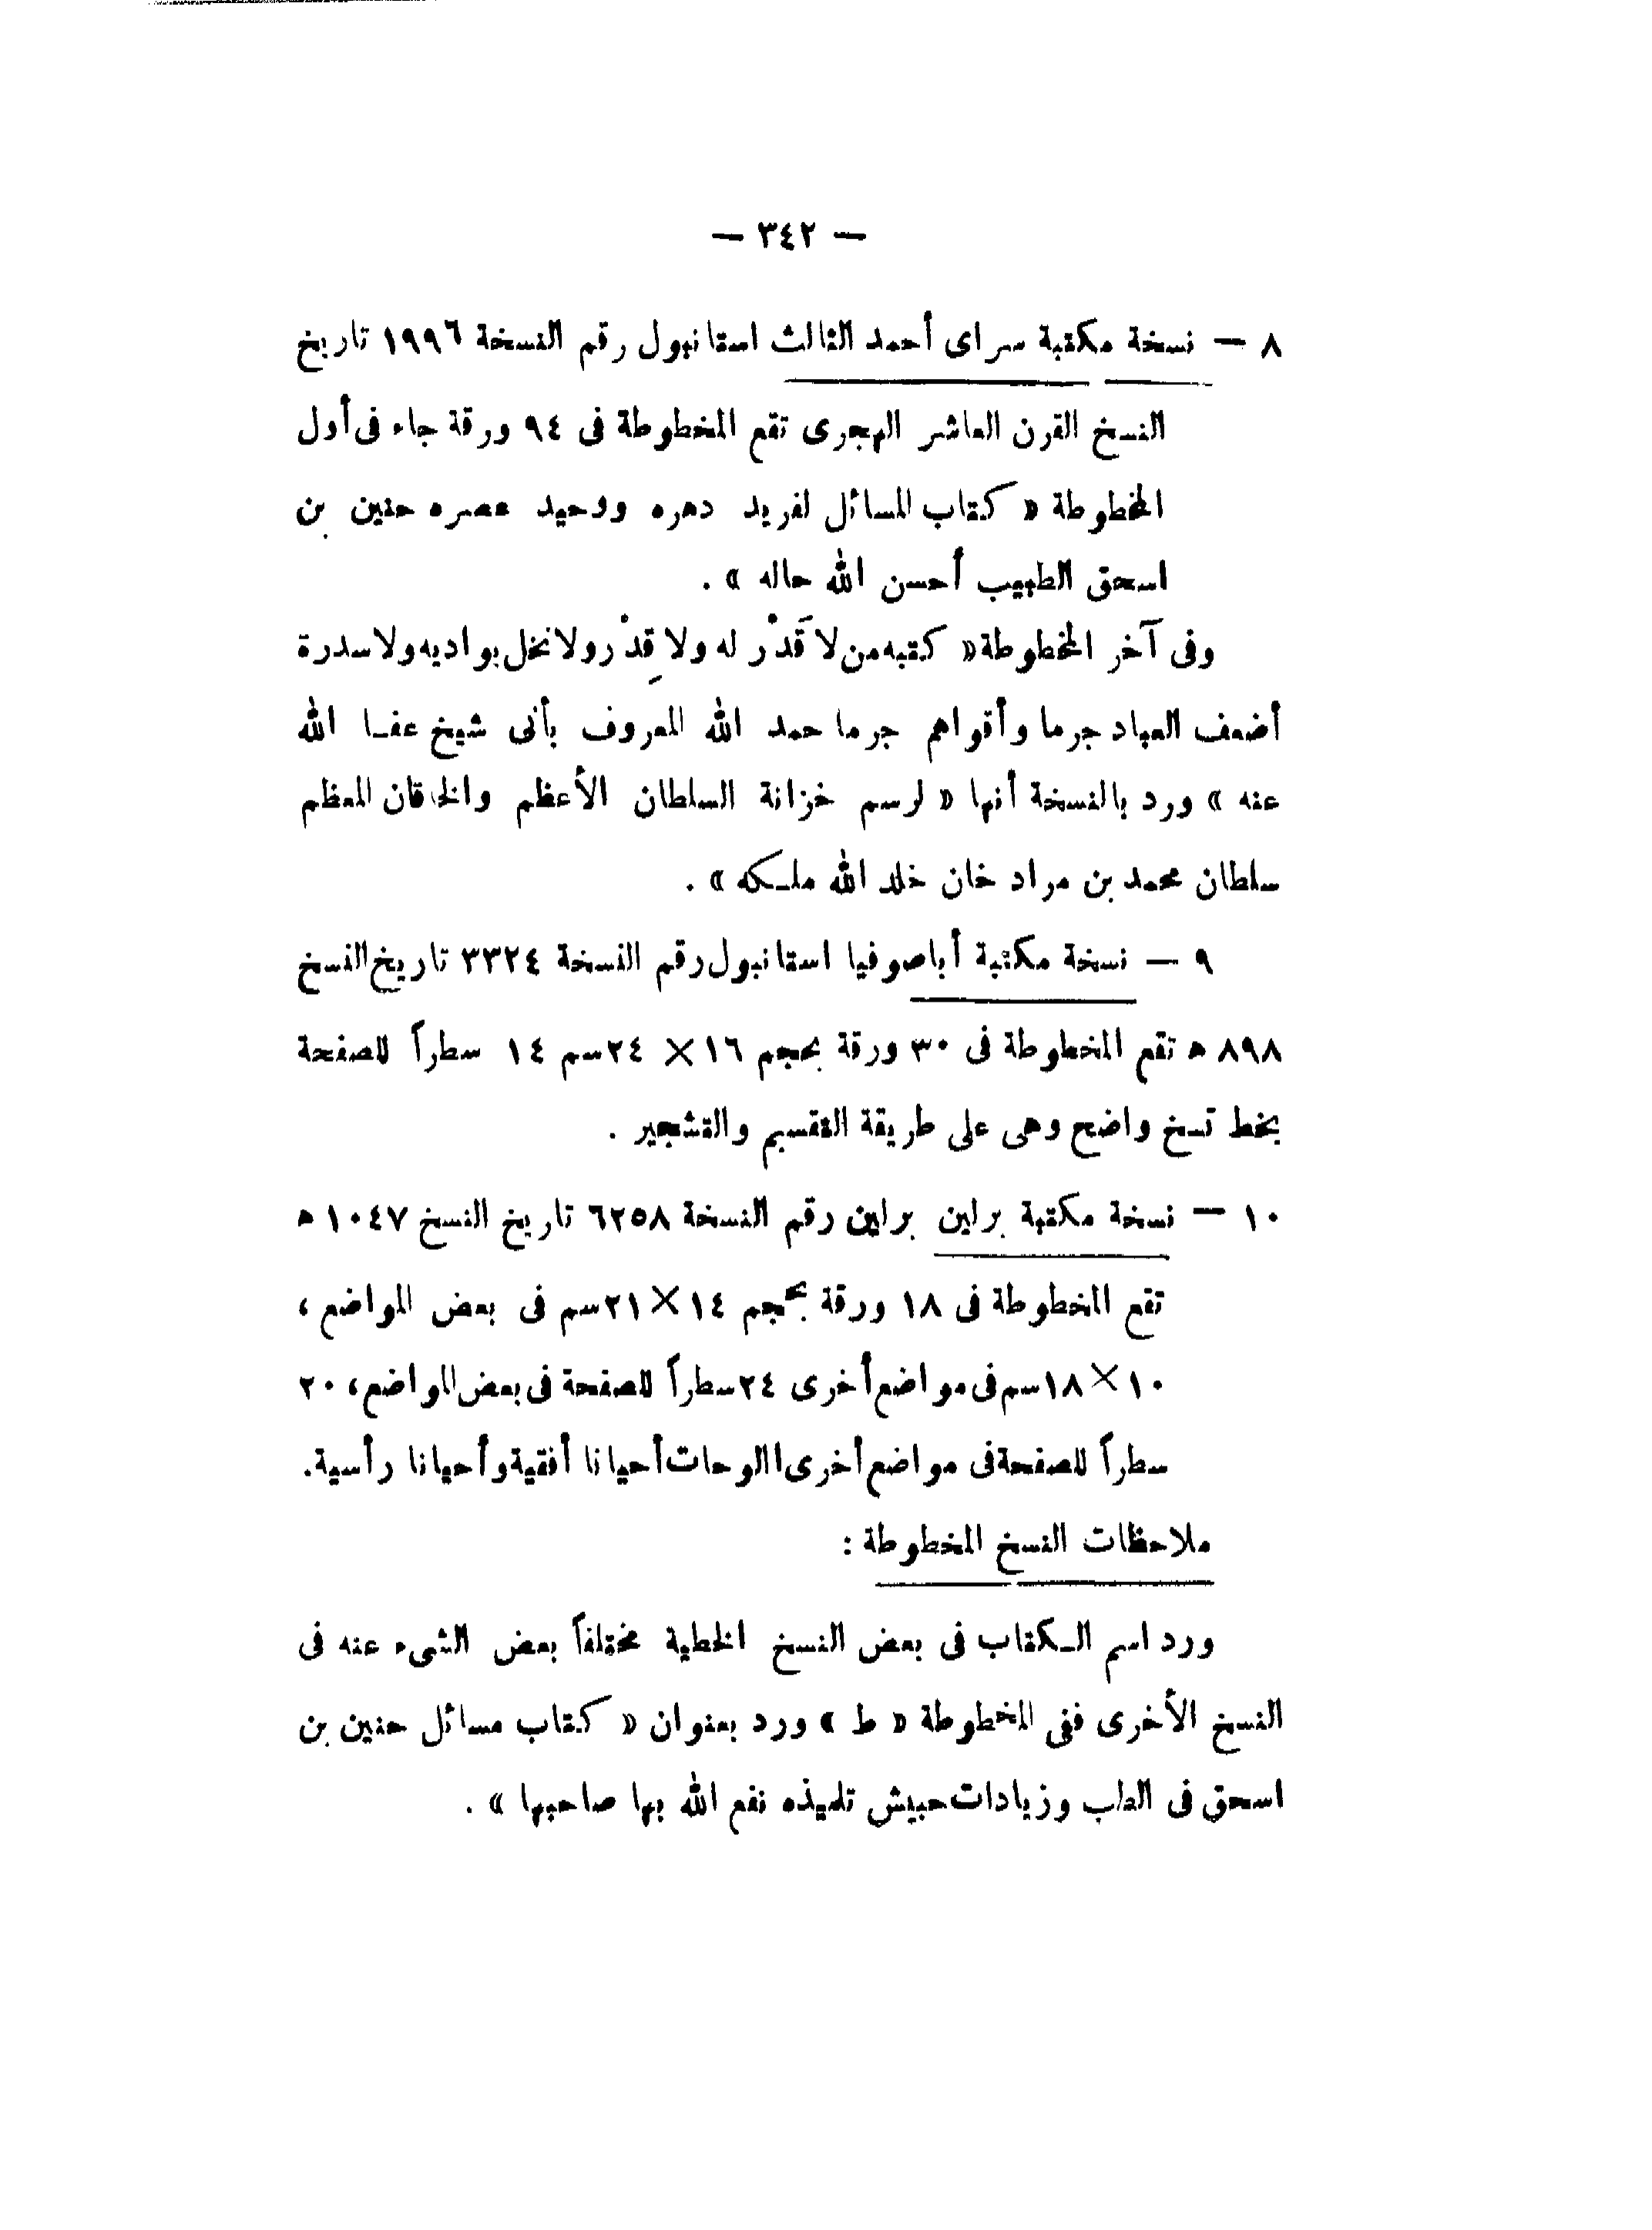 — ٣٤٢ —
٨ — نسخة مكتبة سراى أحمد الثالث استانبول رقم النسخة ١٩٩٦ تاريخ
النسخ القرن العاشر الهجرى تقع المخطوطة فى ٩٤ ورقة جاء فى أول
المخطوطة « كتاب المسائل لفريد دهره ووحيد عصره حنين بن
اسحق الطبيب أحسن الله حاله » .
وفى آخر المخطوطة « كتبه من لا قَدْر له ولا قِدْر ولا نخل بواديه ولا سدرة
أضعف العباد جرما وأقواهم جرما حمد الله المعروف بأنى شيخ عفا الله
عنه » ورد بالنسخة أنها « لرسم خزانة السلطان الأعظم والخاقان المعظم
سلطان محمد بن مراد خان خلد الله ملكه » .
٩ — نسخة مكتبة أباصوفيا استانبول رقم النسخة ٣٣٢٤ تاريخ النسخ
٨٩٨ ه تقع المخطوطة فى ٣٠ ورقة بحجم ١٦ × ٢٤ سم ١٤ سطراً للصفحة
بخط تسخ واضح وهى على طريقة التقسيم والتشجير .
١٠ — نسخة مكتبة برلين برلين رقم النسخة ٦٢٥٨ تاريخ النسخ ١٠٤٧ ه
تقع المخطوطة فى ١٨ ورقة بحجم ١٤ × ٢١ سم فى بعض المواضع ،
١٠ × ١٨ سم فى مواضع أخرى ٢٤ سطراً للصفحة فى بعض المواضع ، ٢٠
سطراً للصفحة فى مواضع أخرى االوحات أحيانا أفقية وأحيانا رأسية .
ملاحظات النسخ المخطوطة :
ورد اسم الكتاب فى بعض النسخ الخطية مختلفاً بعض الشىء عنه فى
النسخ الأخرى ففى المخطوطة « ط » ورد بعنوان « كتاب مسائل حنين بن
اسحق فى الطب وزيادات حبيش تلميذه نفع الله بها صاحبها » .